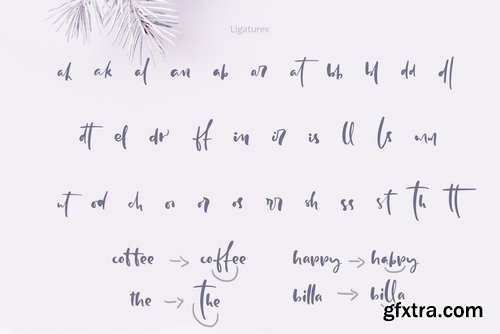 Ligatures
ah ak al an ab ar at bb bl dd dl
dt el dr ff in ir is ll ls
nt od oh oi or os rr sh ss st th tt
coffee → coffee happy → happy
the → the billa → billa
gfxtra.com